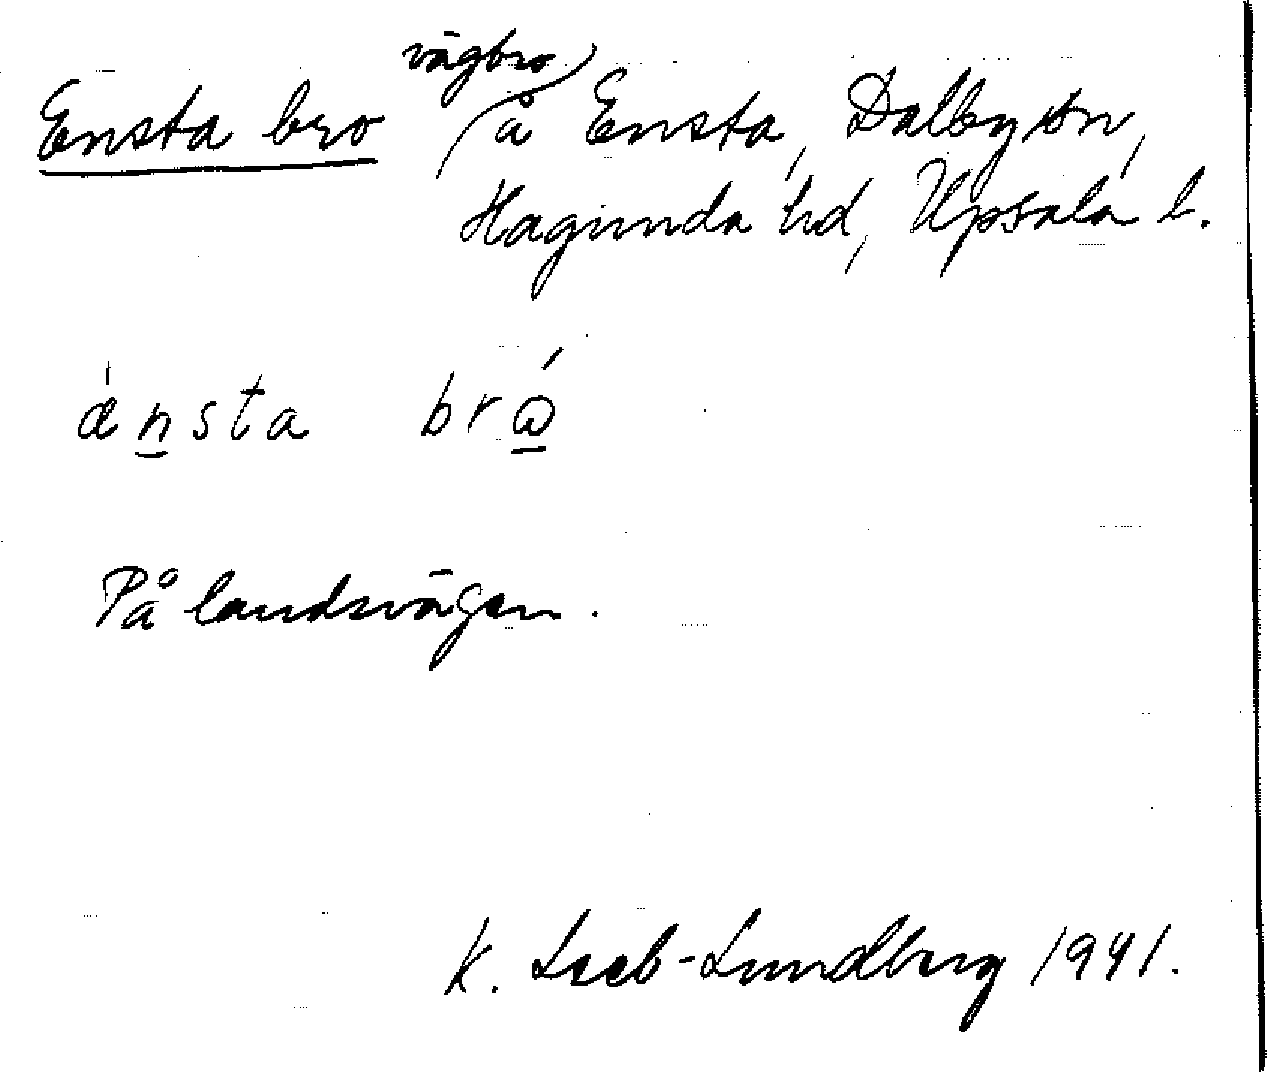 Ensta bro vägbro å Ensta, Dalby sn,
Hagunda hd, Upsala l.
ænsta brω
På landsvägen.
K. Leeb-Lundberg 1941.